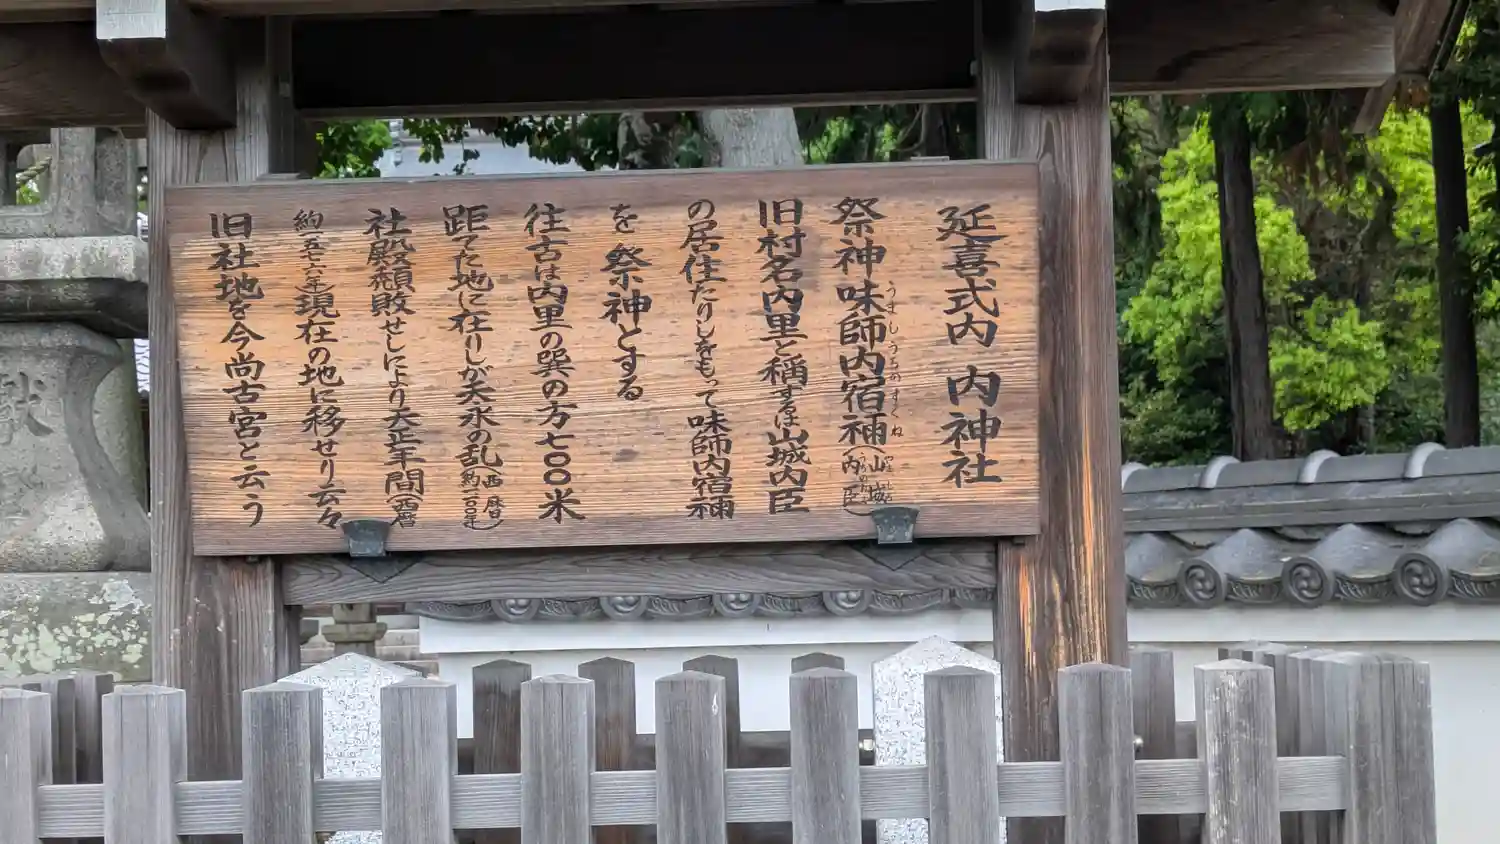 延喜式内 内神社
祭神味師内宿禰(山城内臣)
うましうちのすくね
旧村名内里と稱するは山城内臣
の居住たりしをもって味師内宿禰
を祭神とする
往古は内里の巽の方七〇〇米
距てた地に在りしが天永の乱(西暦約一一〇〇年)
社殿頽敗せしにより天正年間(西暦
約一五七六年)現在の地に移せり云々
旧社地を今尚古宮と云う
献